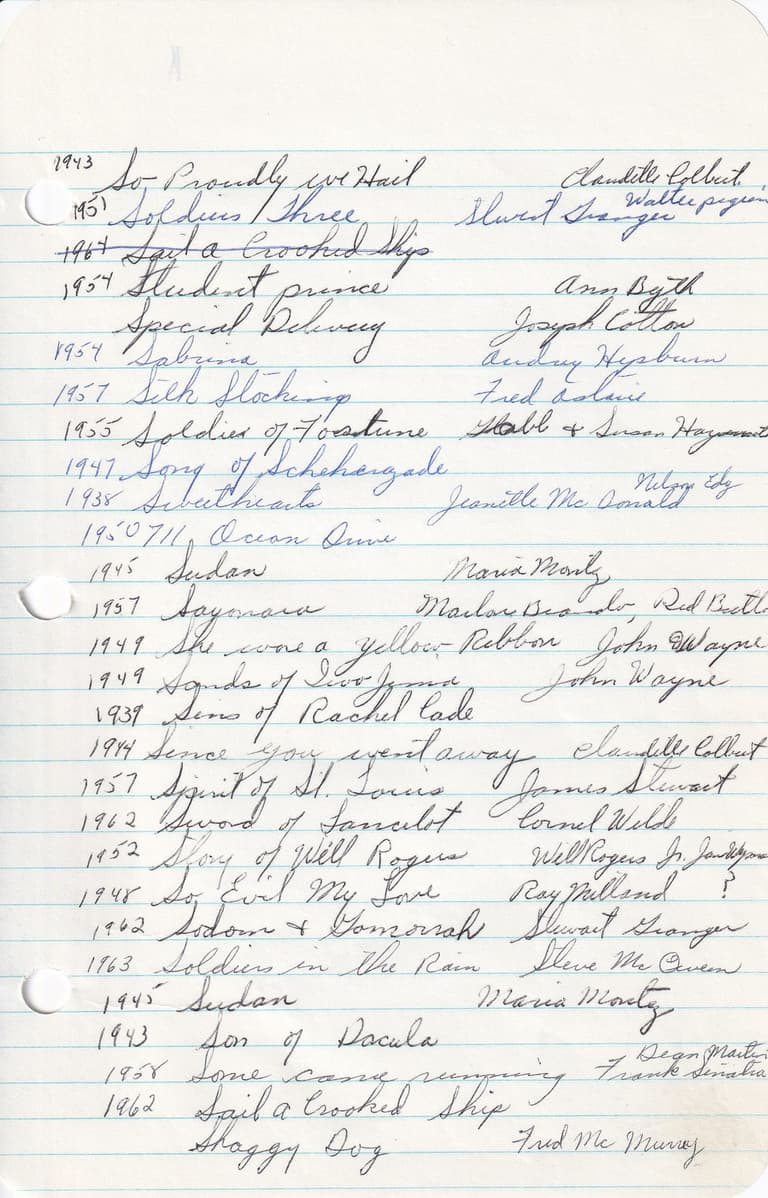 1943 So Proudly we Hail Claudette Colbert
1951 Soldiers Three Stewart Granger Walter pigeon
1964 Sail a Crooked Ship
1954 Student prince Ann Byth
Special Delivery Joseph Cotton
1954 Sabrina Audrey Hepburn
1957 Silk Stockings Fred Astaire
1955 Soldier of Fortune & Susan
1947 Song of Scheherazade
1938 Sweethearts Jeanette Mc Donald Nelson Edy
1950 711 Ocean Drive
1945 Sudan Maria Montz
1957 Sayonara Marlon Brando, Red Butto
1949 She wore a Yellow Ribbon John Wayne
1949 Sands of Iwo Jima John Wayne
1939 Sins of Rachel Cade
1944 Since you went away Claudette Colbert
1957 Spirit of St. Louis James Stewart
1962 Sword of Lancelot Cornel Wilde
1952 Story of Will Rogers Will Rogers Jr. Jan Wyman
1948 So Evil My Love Ray Milland ?
1962 Sodom & Gomorrah Stewart Granger
1963 Soldiers in the Rain Steve Mc Queen
1945 Sudan Maria Montez
1943 Son of Dacula
1958 Some came running Frank Sinatra Dean Martin
1962 Sail a Crooked Ship
Shaggy Dog Fred Mc Murray